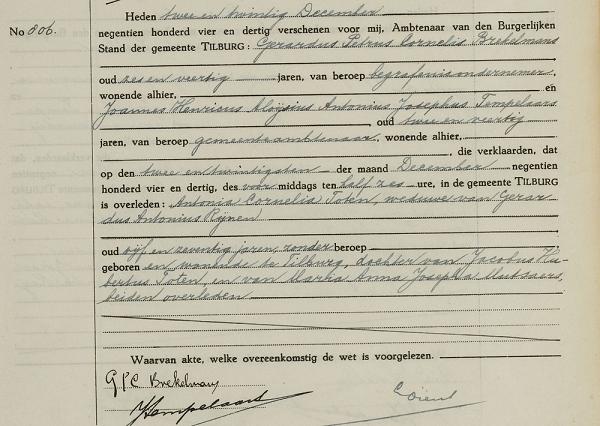 Heden twee en twintig December
No 806. negentien honderd vier en dertig verschenen voor mij, Ambtenaar van den Burgerlijken
Stand der gemeente TILBURG: Gerardus Petrus Cornelis Brekelmans
oud zes en veertig jaren, van beroep begrafenisondernemer,
wonende alhier, en
Joannes Henricus Aloÿsius Antonius Josephus Tempelaars
, oud twee en veertig
jaren, van beroep gemeenteambtenaar, wonende alhier,
, die verklaarden, dat
op den twee en twintigsten der maand December negentien
honderd vier en dertig, des voor middags ten half zes ure, in de gemeente TILBURG
is overleden: Antonia Cornelia Toten, weduwe van Gerar-
dus Antonius Rijnen
oud vijf en zeventig jaren, zonder beroep
geboren en wonende te Tilburg, dochter van Jacobus Hu-
bertus Toten, en van Maria Anna Josepha Mutsaers,
beiden overleden
Waarvan akte, welke overeenkomstig de wet is voorgelezen.
G P C Brekelmans
Tempelaars